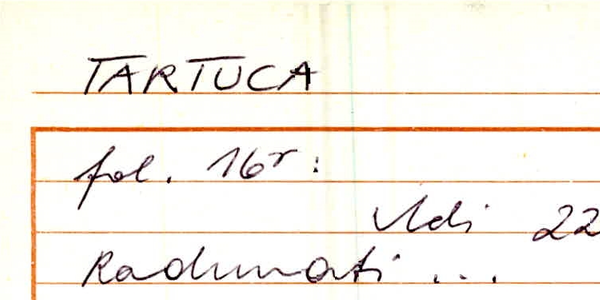 TARTUCA
fol. 16r:
Adi 22
Radunati ...